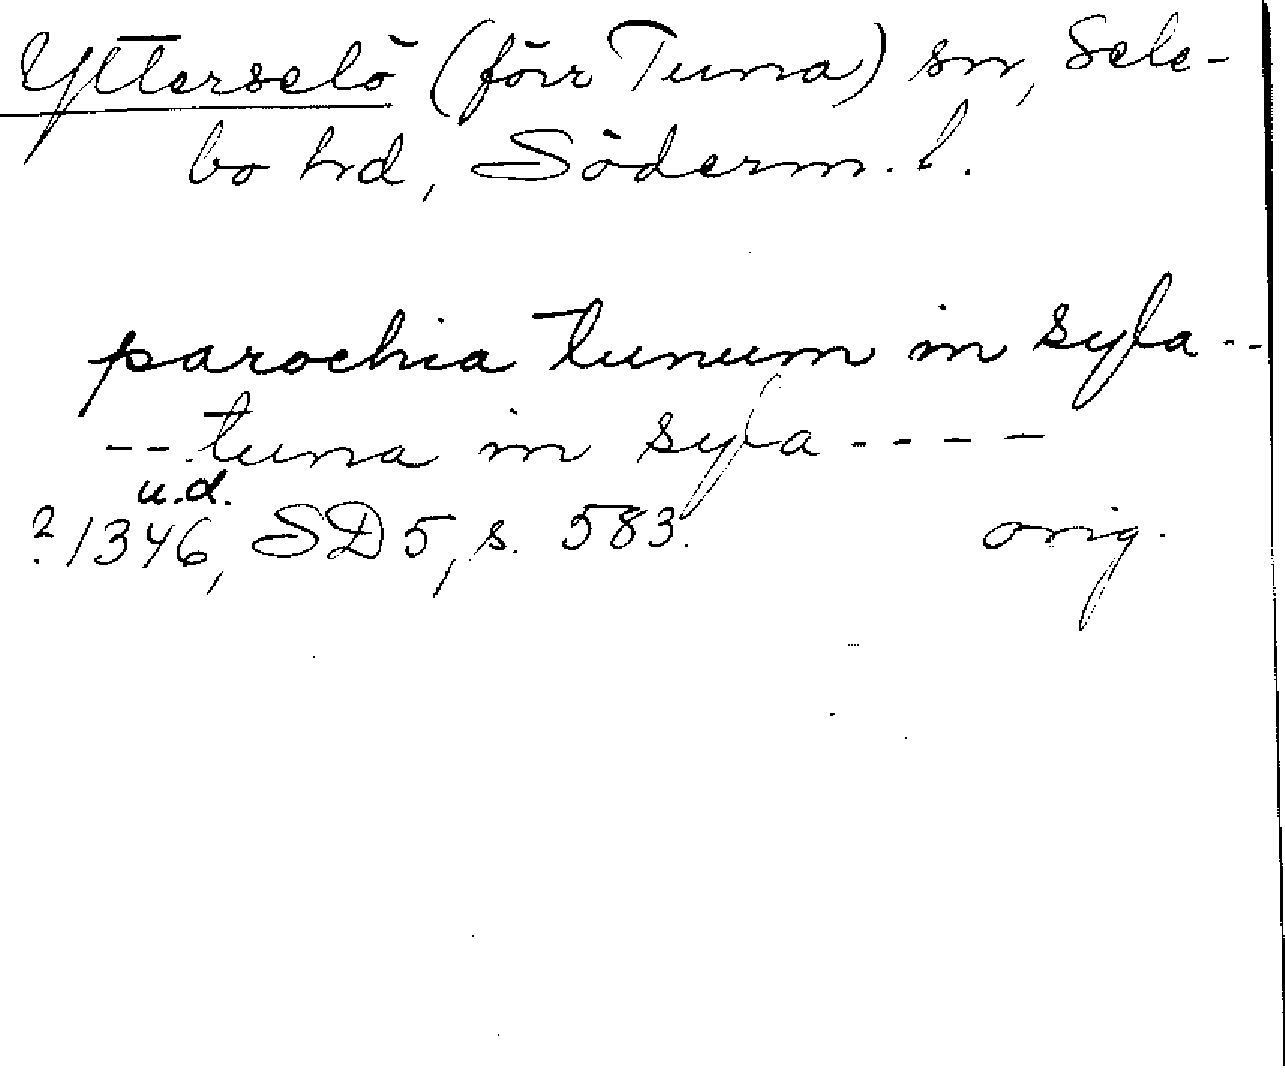 Ytterselö (förr Tuna) sn, Sele-
bo hd, Söderm. l.
parochia tunum in syla --
-- tuna in syla ----
u.d.
? 1346, SD 5, s. 583. orig.